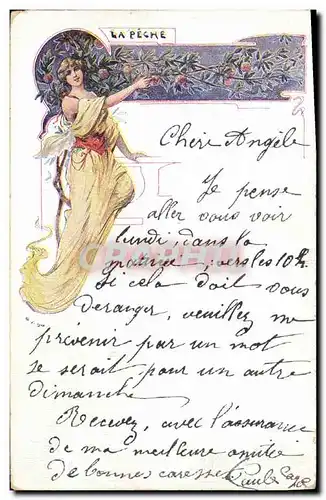 LA PÊCHE
Chère Angèle
Je pense
aller vous voir
lundi, dans la
matinée, vers les 10h.
Si cela doit vous
deranger, veuillez me
prévenir par un mot
se serait pour un autre
dimanche
Recevez, avec l'assurance
de ma meilleure amitié
de bonnes caresses